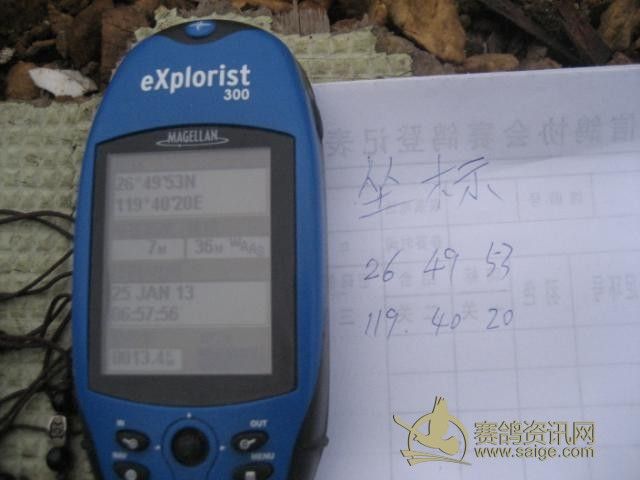 eXplorist
300
MAGELLAN
26°49'53N
119°40'20E
7M 36M WAAS
25 JAN 13
06:57:56
0013.4
IN OUT
NAV MENU
坐标
26 49 53
119. 40 20
信鸽协会赛鸽登记表
赛鸽资讯网
www.saige.com